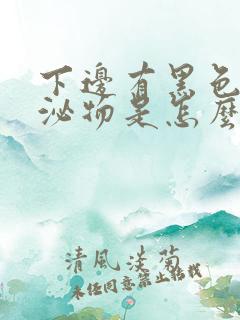 下邊有黑色
泌物是怎麼
清風淡菊
未經同意禁止轉載